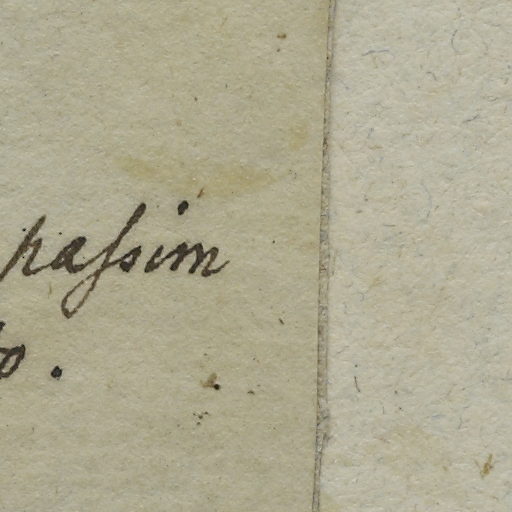 paſsim